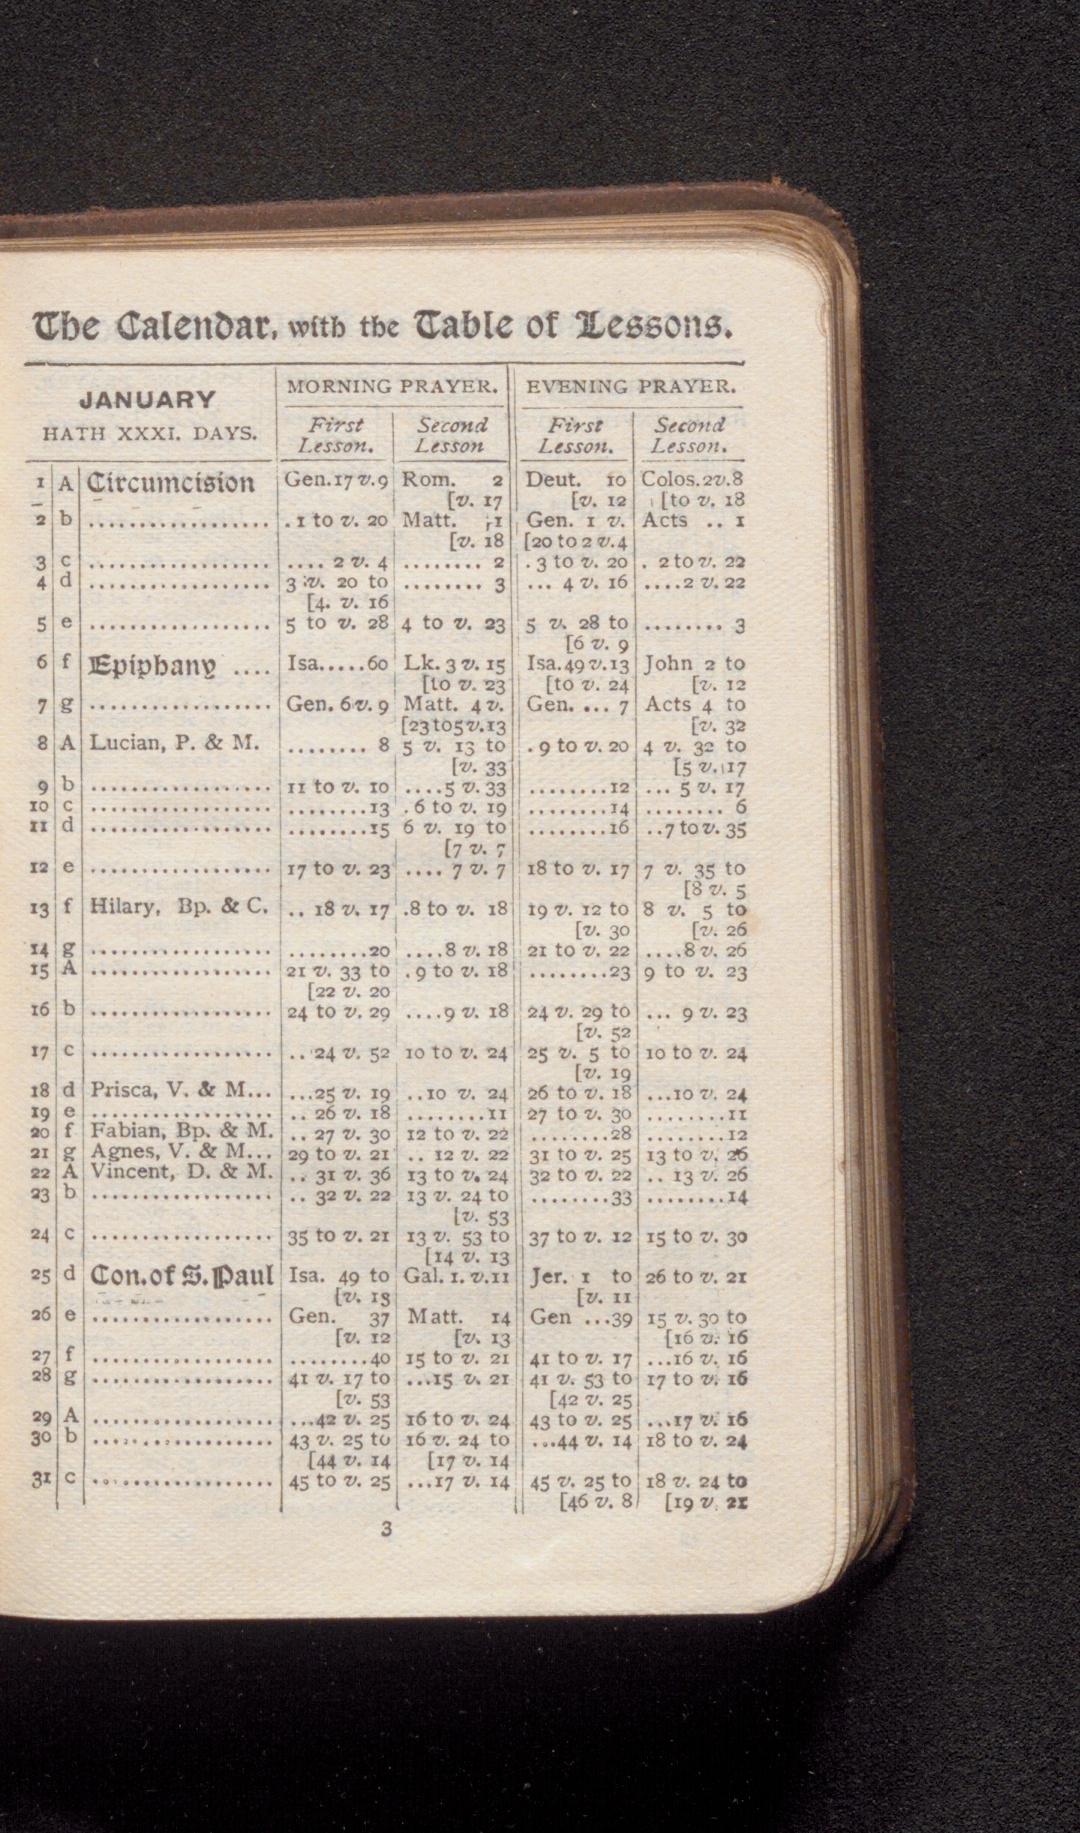 The Calendar, with the Table of Lessons.
JANUARY HATH XXXI. DAYS. MORNING PRAYER. EVENING PRAYER.
First Lesson. Second Lesson First Lesson. Second Lesson.
1 A Circumcision Gen.17 v.9 Rom. 2 Deut. 10 Colos.2v.8
[v. 17 [v. 12 [to v. 18
2 b .................. . 1 to v. 20 Matt. 1 Gen. 1 v. Acts .. 1
[v. 18 [20 to 2 v.4
3 c .................. .... 2 v. 4 ........ 2 . 3 to v. 20 . 2 to v. 22
4 d .................. 3 v. 20 to ........ 3 ... 4 v. 16 ....2 v. 22
[4. v. 16
5 e .................. 5 to v. 28 4 to v. 23 5 v. 28 to ........ 3
[6 v. 9
6 f Epiphany .... Isa.....60 Lk. 3 v. 15 Isa.49 v.13 John 2 to
[to v. 23 [to v. 24 [v. 12
7 g .................. Gen. 6 v. 9 Matt. 4 v. Gen. ... 7 Acts 4 to
[23 to 5 v.13 [v. 32
8 A Lucian, P. & M. ........ 8 5 v. 13 to . 9 to v. 20 4 v. 32 to
[v. 33 [5 v. 17
9 b .................. 11 to v. 10 ....5 v. 33 ........12 ... 5 v. 17
10 c .................. ........13 . 6 to v. 19 ........14 ........ 6
11 d .................. ........15 6 v. 19 to ........16 ..7 to v. 35
[7 v. 7
12 e .................. 17 to v. 23 .... 7 v. 7 18 to v. 17 7 v. 35 to
[8 v. 5
13 f Hilary, Bp. & C. .. 18 v. 17 .8 to v. 18 19 v. 12 to 8 v. 5 to
[v. 30 [v. 26
14 g .................. ........20 ....8 v. 18 21 to v. 22 ....8 v. 26
15 A .................. 21 v. 33 to . 9 to v. 18 ........23 9 to v. 23
[22 v. 20
16 b .................. 24 to v. 29 ....9 v. 18 24 v. 29 to ... 9 v. 23
[v. 52
17 c .................. .. 24 v. 52 10 to v. 24 25 v. 5 to 10 to v. 24
[v. 19
18 d Prisca, V. & M... ...25 v. 19 ..10 v. 24 26 to v. 18 ...10 v. 24
19 e .................. .. 26 v. 18 ........11 27 to v. 30 ........11
20 f Fabian, Bp. & M. .. 27 v. 30 12 to v. 22 ........28 ........12
21 g Agnes, V. & M... 29 to v. 21 .. 12 v. 22 31 to v. 25 13 to v. 26
22 A Vincent, D. & M. .. 31 v. 36 13 to v. 24 32 to v. 22 .. 13 v. 26
23 b .................. .. 32 v. 22 13 v. 24 to ........33 ........14
[v. 53
24 c .................. 35 to v. 21 13 v. 53 to 37 to v. 12 15 to v. 30
[14 v. 13
25 d Con. of S. Paul Isa. 49 to Gal. 1. v.11 Jer. 1 to 26 to v. 21
[v. 13 [v. 11
26 e .................. Gen. 37 Matt. 14 Gen ...39 15 v. 30 to
[v. 12 [v. 13 [16 v. 16
27 f .................. ........40 15 to v. 21 41 to v. 17 ...16 v. 16
28 g .................. 41 v. 17 to ...15 v. 21 41 v. 53 to 17 to v. 16
[v. 53 [42 v. 25
29 A .................. ...42 v. 25 16 to v. 24 43 to v. 25 ...17 v. 16
30 b .................. 43 v. 25 to 16 v. 24 to ...44 v. 14 18 to v. 24
[44 v. 14 [17 v. 14
31 c .................. 45 to v. 25 ...17 v. 14 45 v. 25 to 18 v. 24 to
[46 v. 8 [19 v. 21
3